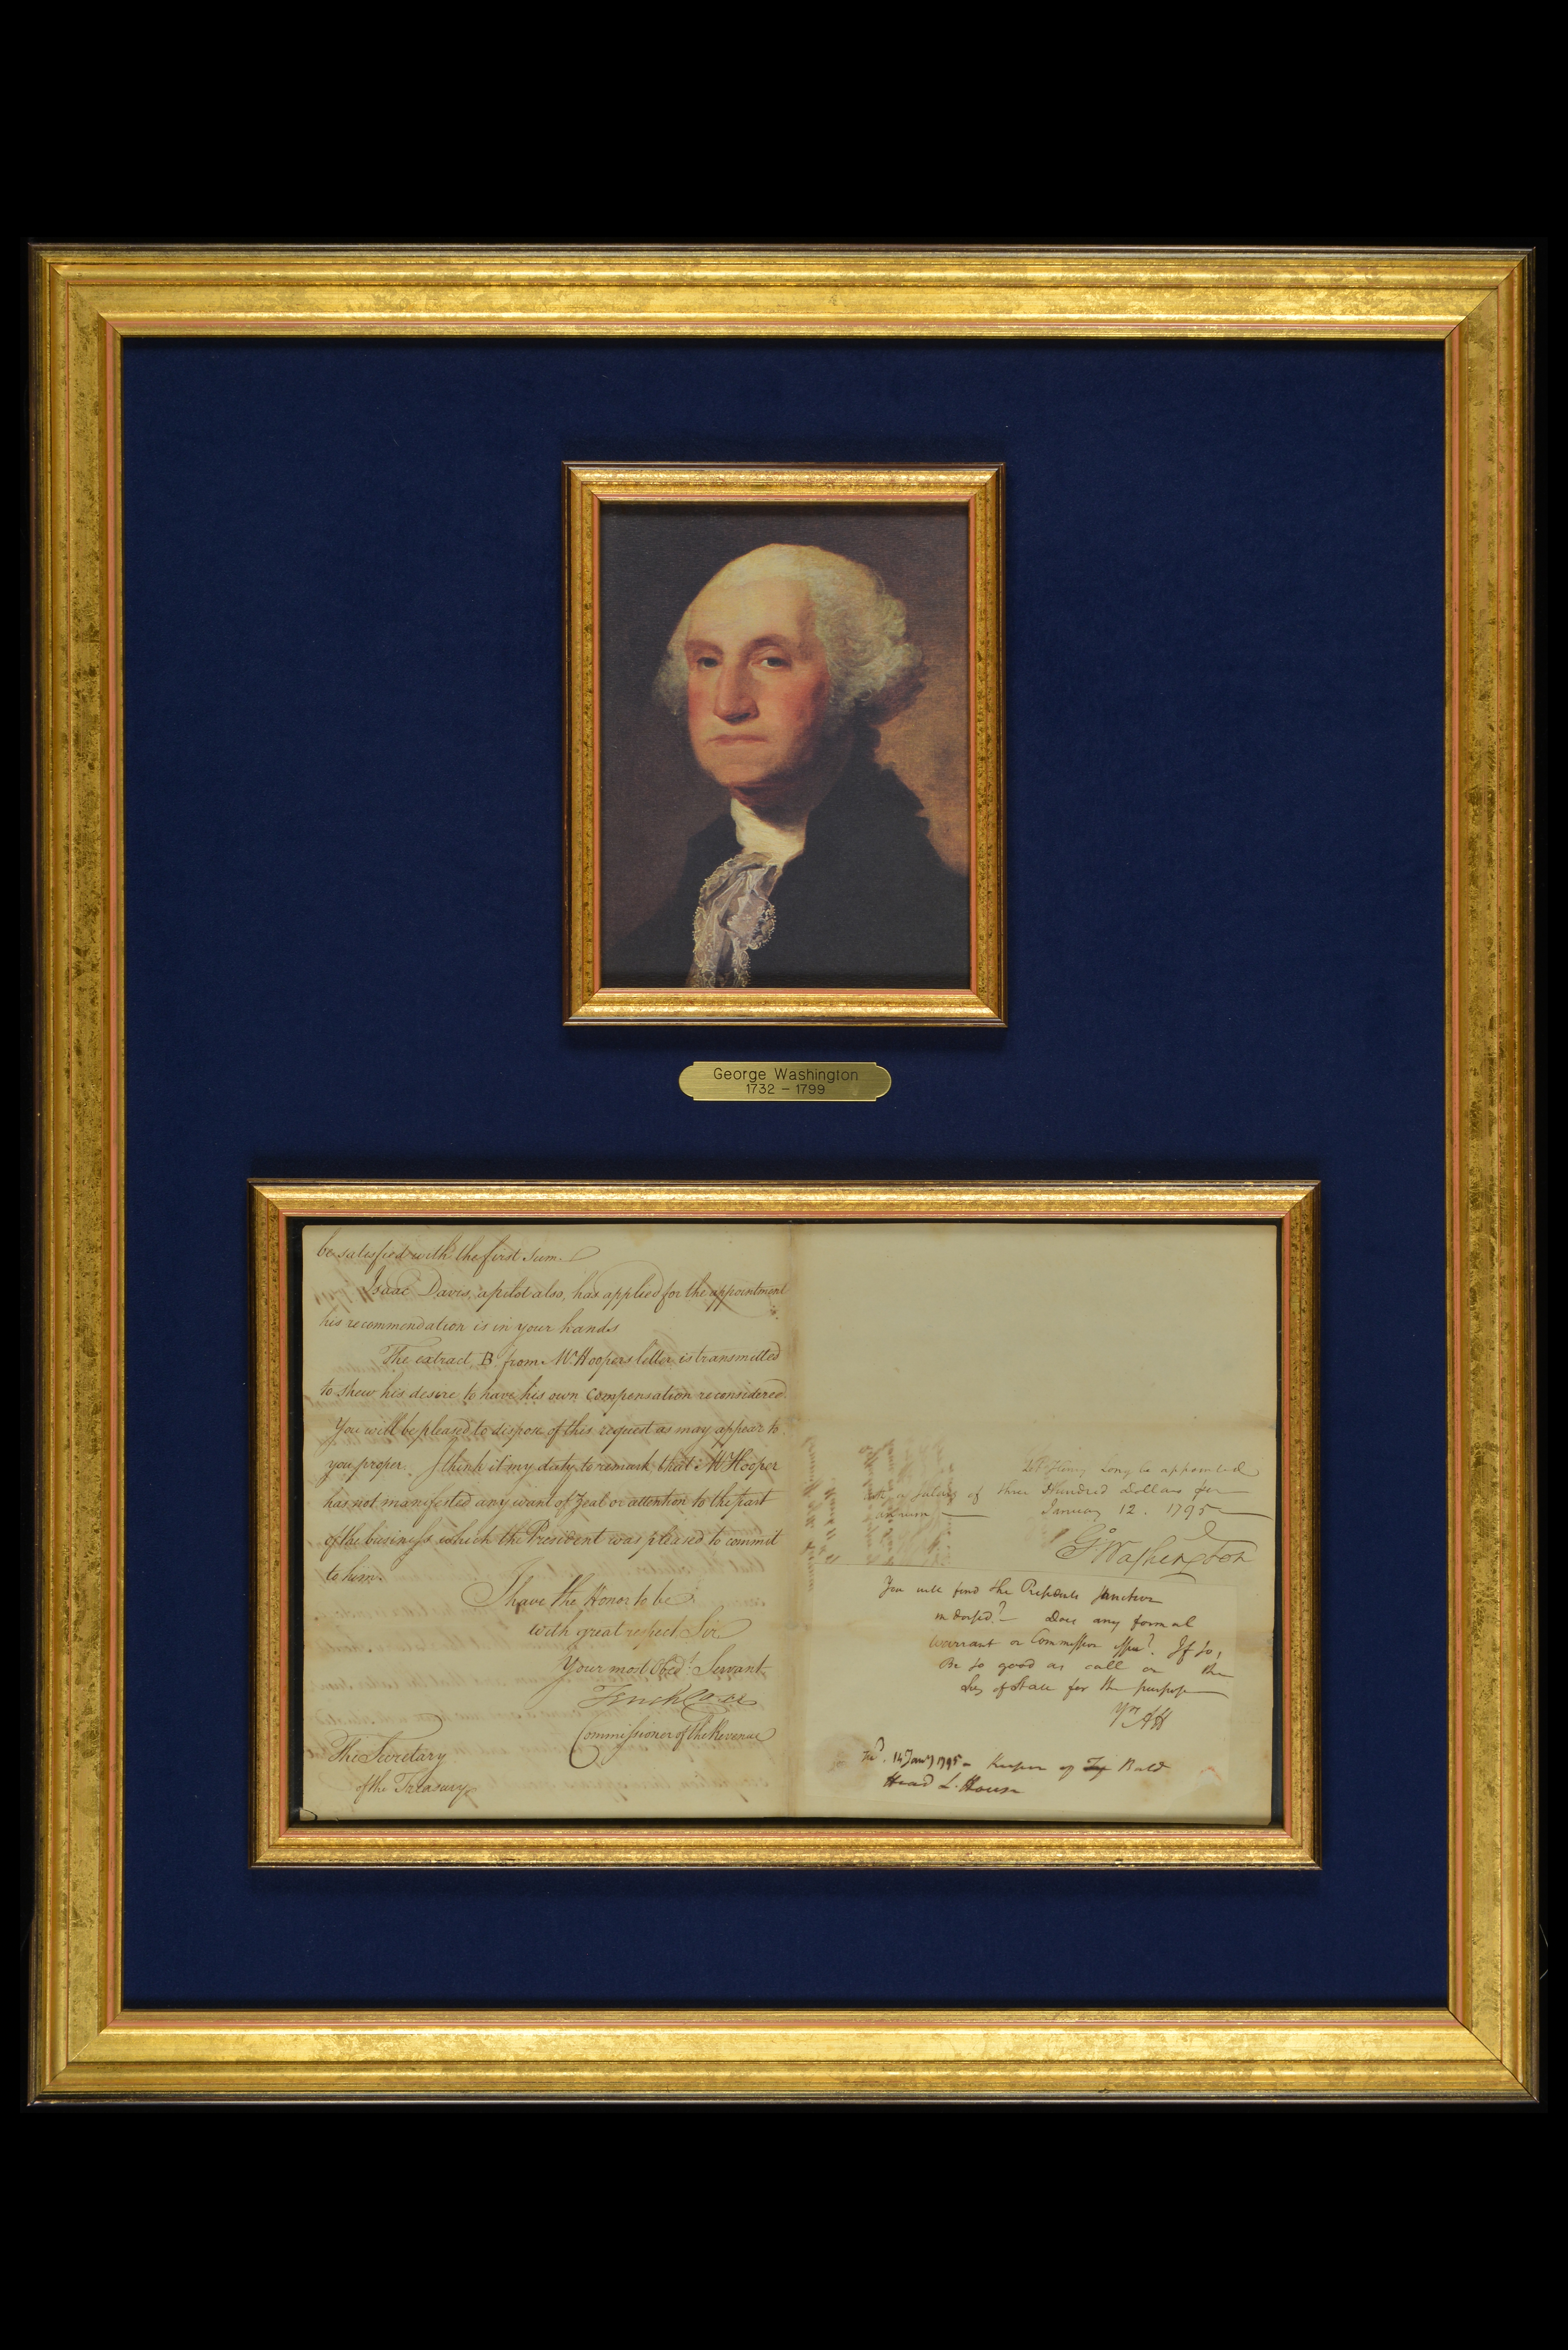 George Washington
1732 – 1799
be satisfied with the first sum.
Isaac Davis, a pilot also, has applied for the appointment
his recommendation is in your hands
The extract, B. from Mr. Hoopers letter is transmitted
to shew his desire to have his own compensation reconsidered.
You will be pleased to dispose of this request as may appear to
you proper. I think it my duty to remark that Mr Hooper
has not manifested any want of zeal or attention to the part
of the business which the President was pleased to commit
to him.
I have the Honor to be
with great respect Sir
Your most Obedt. Servant
Tench Coxe
Commissioner of the Revenue
The Secretary
of the Treasury
Let Henry Long be appointed
with a salary of three Hundred Dollars per
annum — January 12. 1795
Go. Washington
You will find the Presidents sanction
indorsed? — Does any formal
warrant or Commission issue? If so,
Be so good as call on the
Secy of State for the purpose
Yrs AH
14 Jany 1795 — Keeper of Bald
Head L. House